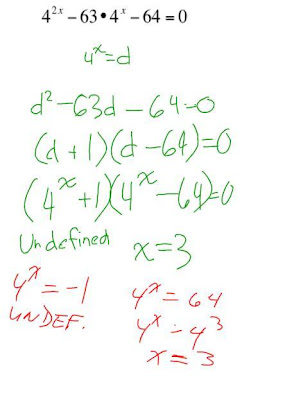 4²ˣ – 63•4ˣ – 64 = 0
4ˣ=d
d²-63d-64=0
(d+1)(d-64)=0
(4ˣ+1)(4ˣ-64)=0
Undefined x=3
4ˣ=-1
UNDEF.
4ˣ=64
4ˣ=4³
x=3